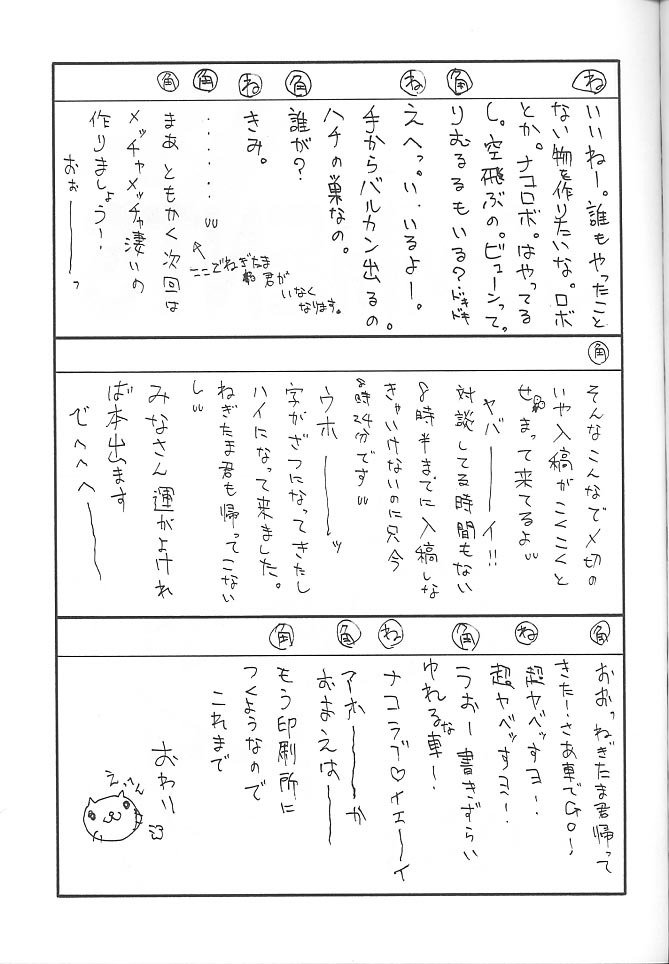 ね
いいねー。誰もやったこと
ない物を作りたいな。ロボ
とか。ナコロボ。はやってる
し。空飛ぶの。ビューンって。
角
りむるるもいる?ドキドキ
ね
えへっ。い、いるよー。
手からバルカン出るの。
ハチの巣なの。
角
誰が?
ね
きみ。
角
・・・・・・
ここでねぎたま
君が
いなく
なります。
角
まあ ともかく次回は
メッチャメッチャ凄いの
作りましょう!
おぉーーっ
角
そんなこんなで〆切の
いや入稿がこくこくと
せまって来てるよ
ヤバーーイ!!
対談してる時間もない
8時半までに入稿しな
きゃいけないのに只今
8時24分です
ウホーーッ
字がざつになってきたし
ハイになって来ました。
ねぎたま君も帰ってこない
し
みなさん 運がよけれ
ば本出ます
でへへへーー
角
おおっねぎたま君帰って
きたー!さあ車でGO!
ね
超ヤベッすヨー!
超ヤベッすヨー!
角
うおー書きずらい
ゆれるな車ー!
ね
ナコラブ♡イェーイ
角
アホーーか
おまえはーー
角
もう印刷所に
つくようなので
これまで
おわり